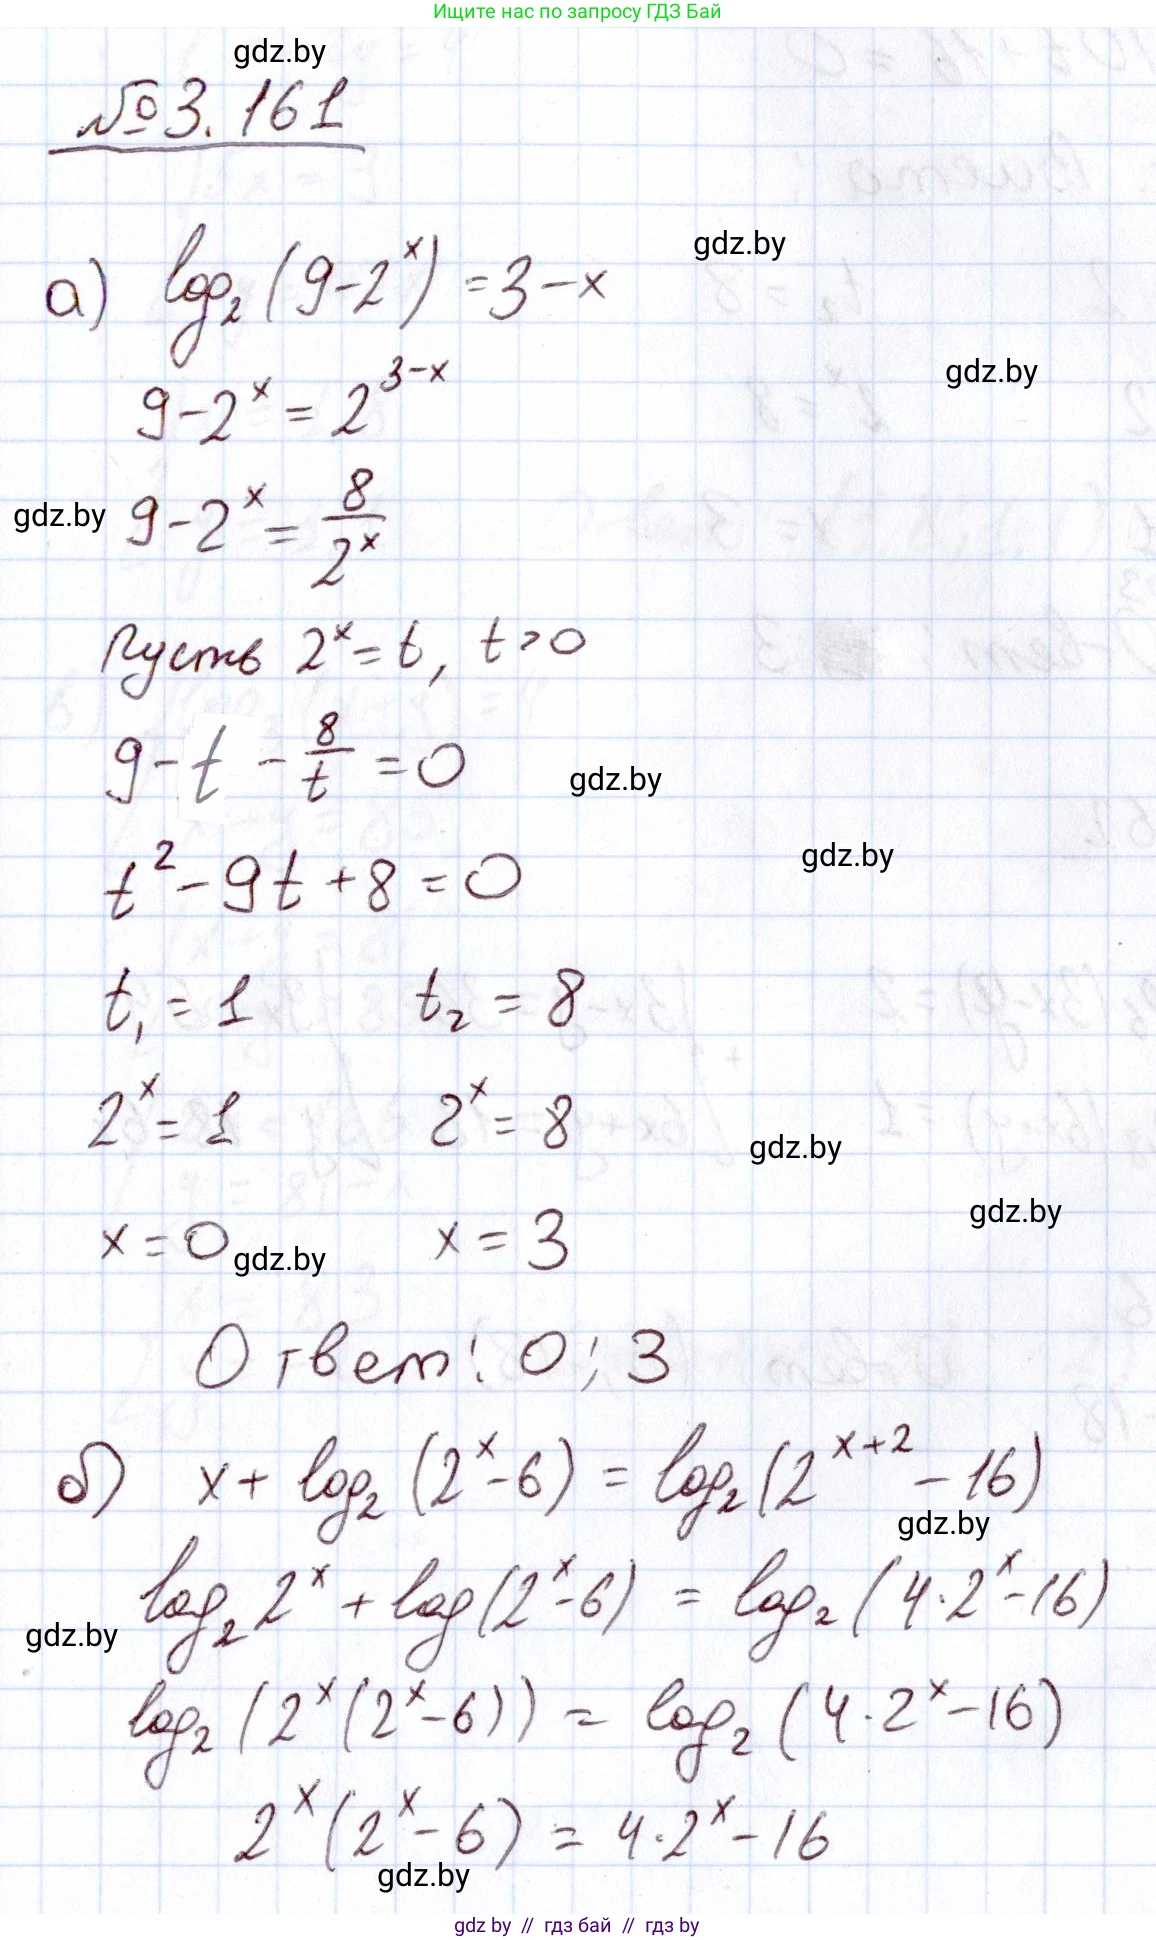 Ищите нас по запросу ГДЗ Бай
gdz.by
№3.161
а) log₂(9-2ˣ) = 3-x
gdz.by
9-2ˣ = 2³⁻ˣ
gdz.by
gdz.by
9-2ˣ = 8/2ˣ
Пусть 2ˣ = t, t>0
9-t - 8/t = 0
gdz.by
t² - 9t + 8 = 0
gdz.by
t₁ = 1 t₂ = 8
2ˣ = 1 2ˣ = 8
gdz.by
x = 0 x = 3
gdz.by
gdz.by
Ответ: 0; 3
б) x + log₂(2ˣ-6) = log₂(2ˣ⁺² - 16)
gdz.by
log₂2ˣ + log(2ˣ-6) = log₂(4·2ˣ-16)
gdz.by
log₂(2ˣ(2ˣ-6)) = log₂(4·2ˣ-16)
2ˣ(2ˣ-6) = 4·2ˣ-16
gdz.by
gdz by // гдз бай // гдз by